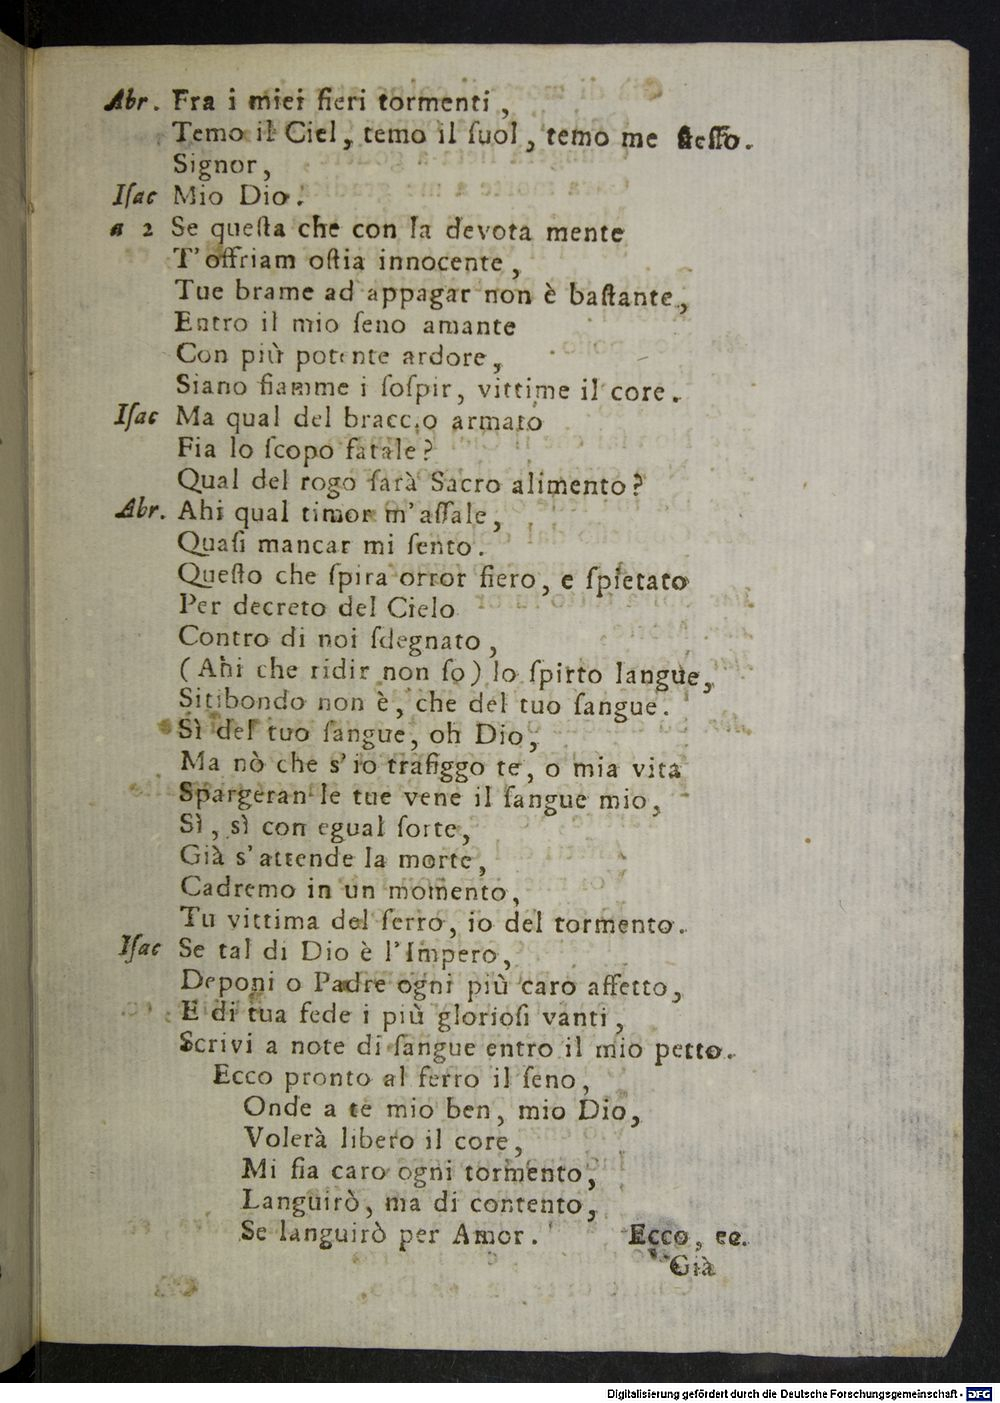 Abr. Fra i miei fieri tormenti,
Temo il Ciel, temo il ſuol, temo me ſteſſo.
Signor,
Iſac Mio Dio.
a 2 Se queſta che con la devota mente
T'offriam oſtia innocente,
Tue brame ad appagar non è baſtante,
Entro il mio ſeno amante
Con più potente ardore,
Siano fiamme i ſoſpir, vittime il core.
Iſac Ma qual del braccio armato
Fia lo ſcopo fatale?
Qual del rogo ſarà Sacro alimento?
Abr. Ahi qual timor m'aſſale,
Quaſi mancar mi ſento.
Queſto che ſpira orror fiero, e ſpietato
Per decreto del Cielo
Contro di noi ſdegnato,
(Ahi che ridir non ſo) lo ſpirto langue,
Sitibondo non è, che del tuo ſangue.
Sì del tuo ſangue, oh Dio,
Ma nò che s'io trafiggo te, o mia vita
Spargeran le tue vene il ſangue mio,
Sì, sì con egual ſorte,
Già s'attende la morte,
Cadremo in un momento,
Tu vittima del ferro, io del tormento.
Iſac Se tal di Dio è l'Impero,
Deponi o Padre ogni più caro affetto,
E di tua fede i più glorioſi vanti,
Scrivi a note di ſangue entro il mio petto.
Ecco pronto al ferro il ſeno,
Onde a te mio ben, mio Dio,
Volerà libero il core,
Mi fia caro ogni tormento,
Languirò, ma di contento,
Se languirò per Amor. Ecco, ec.
Già
Digitalisierung gefördert durch die Deutsche Forschungsgemeinschaft - DFG